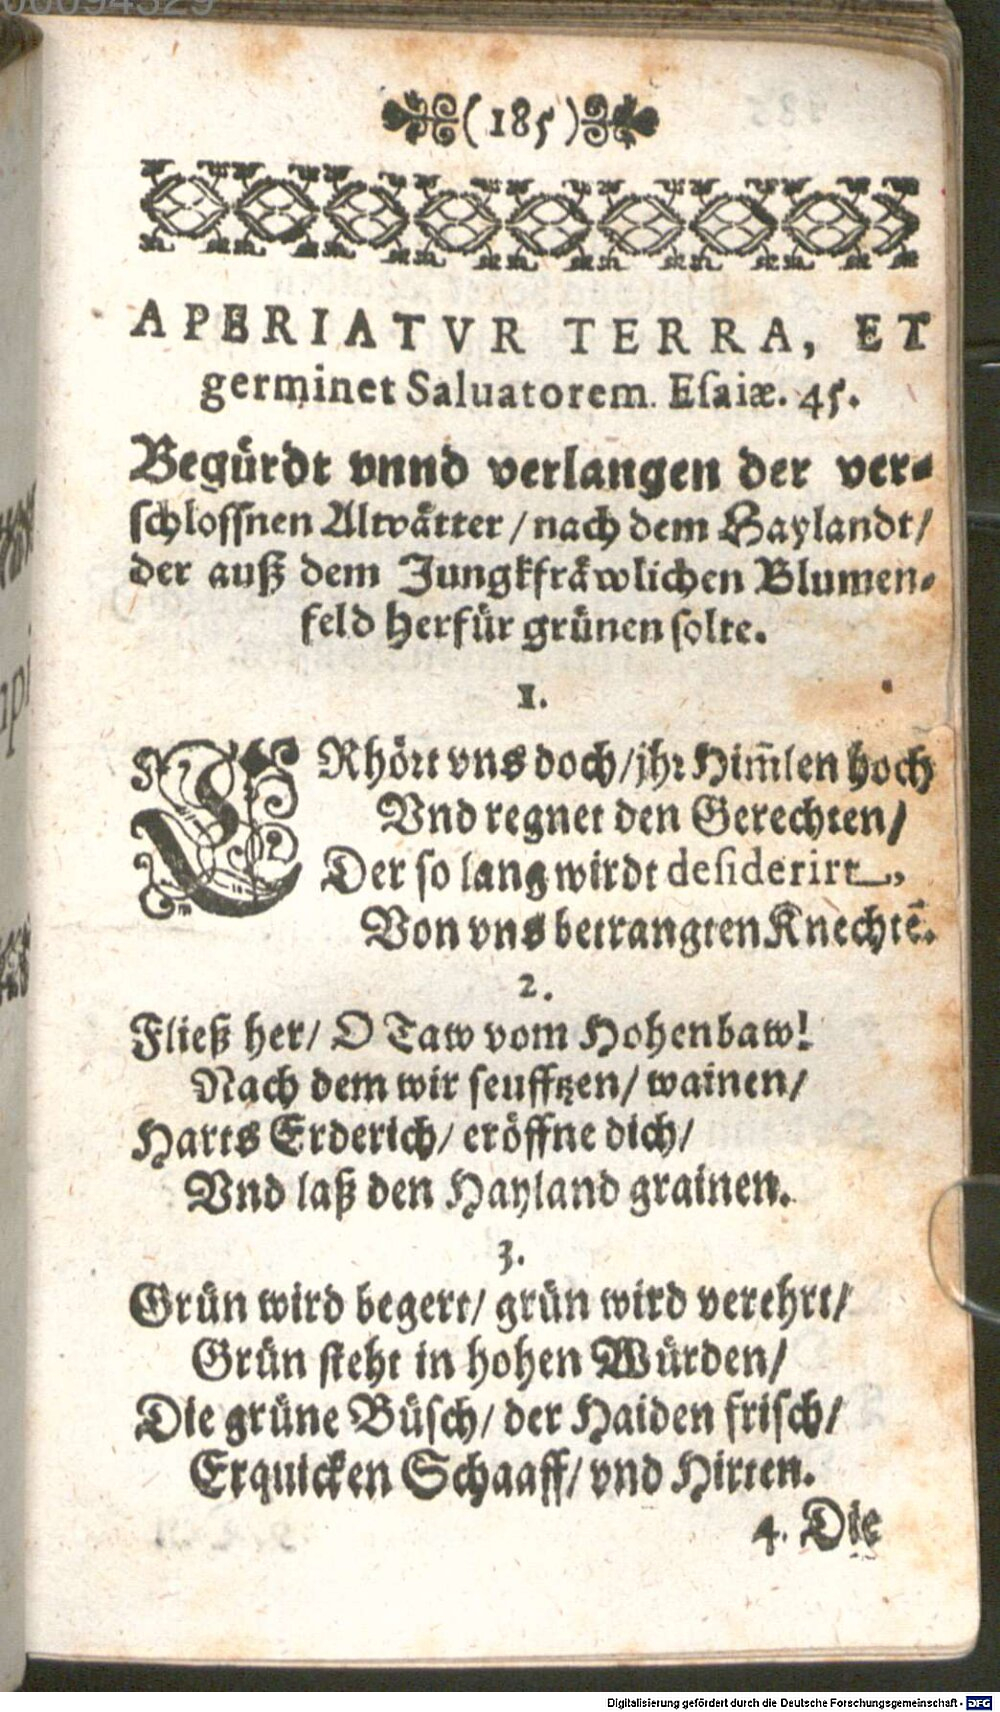 (185)
APERIATVR TERRA, ET
germinet Saluatorem. Esaiæ. 45.
Begürdt vnnd verlangen der ver-
schlossnen Altvätter / nach dem Haylandt /
der auß dem Jungkfräwlichen Blumen-
feld herfür grünen solte.
1.
ERhört vns doch / jhr Him̃len hoch
Vnd regnet den Gerechten /
Der so lang wirdt desiderirt,
Von vns betrangten Knechtẽ.
2.
Fließ her / O Taw vom Hohenbaw!
Nach dem wir seufftzen / wainen /
Harts Erderich / eröffne dich /
Vnd laß den Hayland grainen.
3.
Grün wird begert / grün wird verehrt /
Grün steht in hohen Würden /
Die grüne Büsch / der Haiden frisch /
Erquicken Schaaff / vnd Hirten.
4. Die
Digitalisierung gefördert durch die Deutsche Forschungsgemeinschaft - DFG